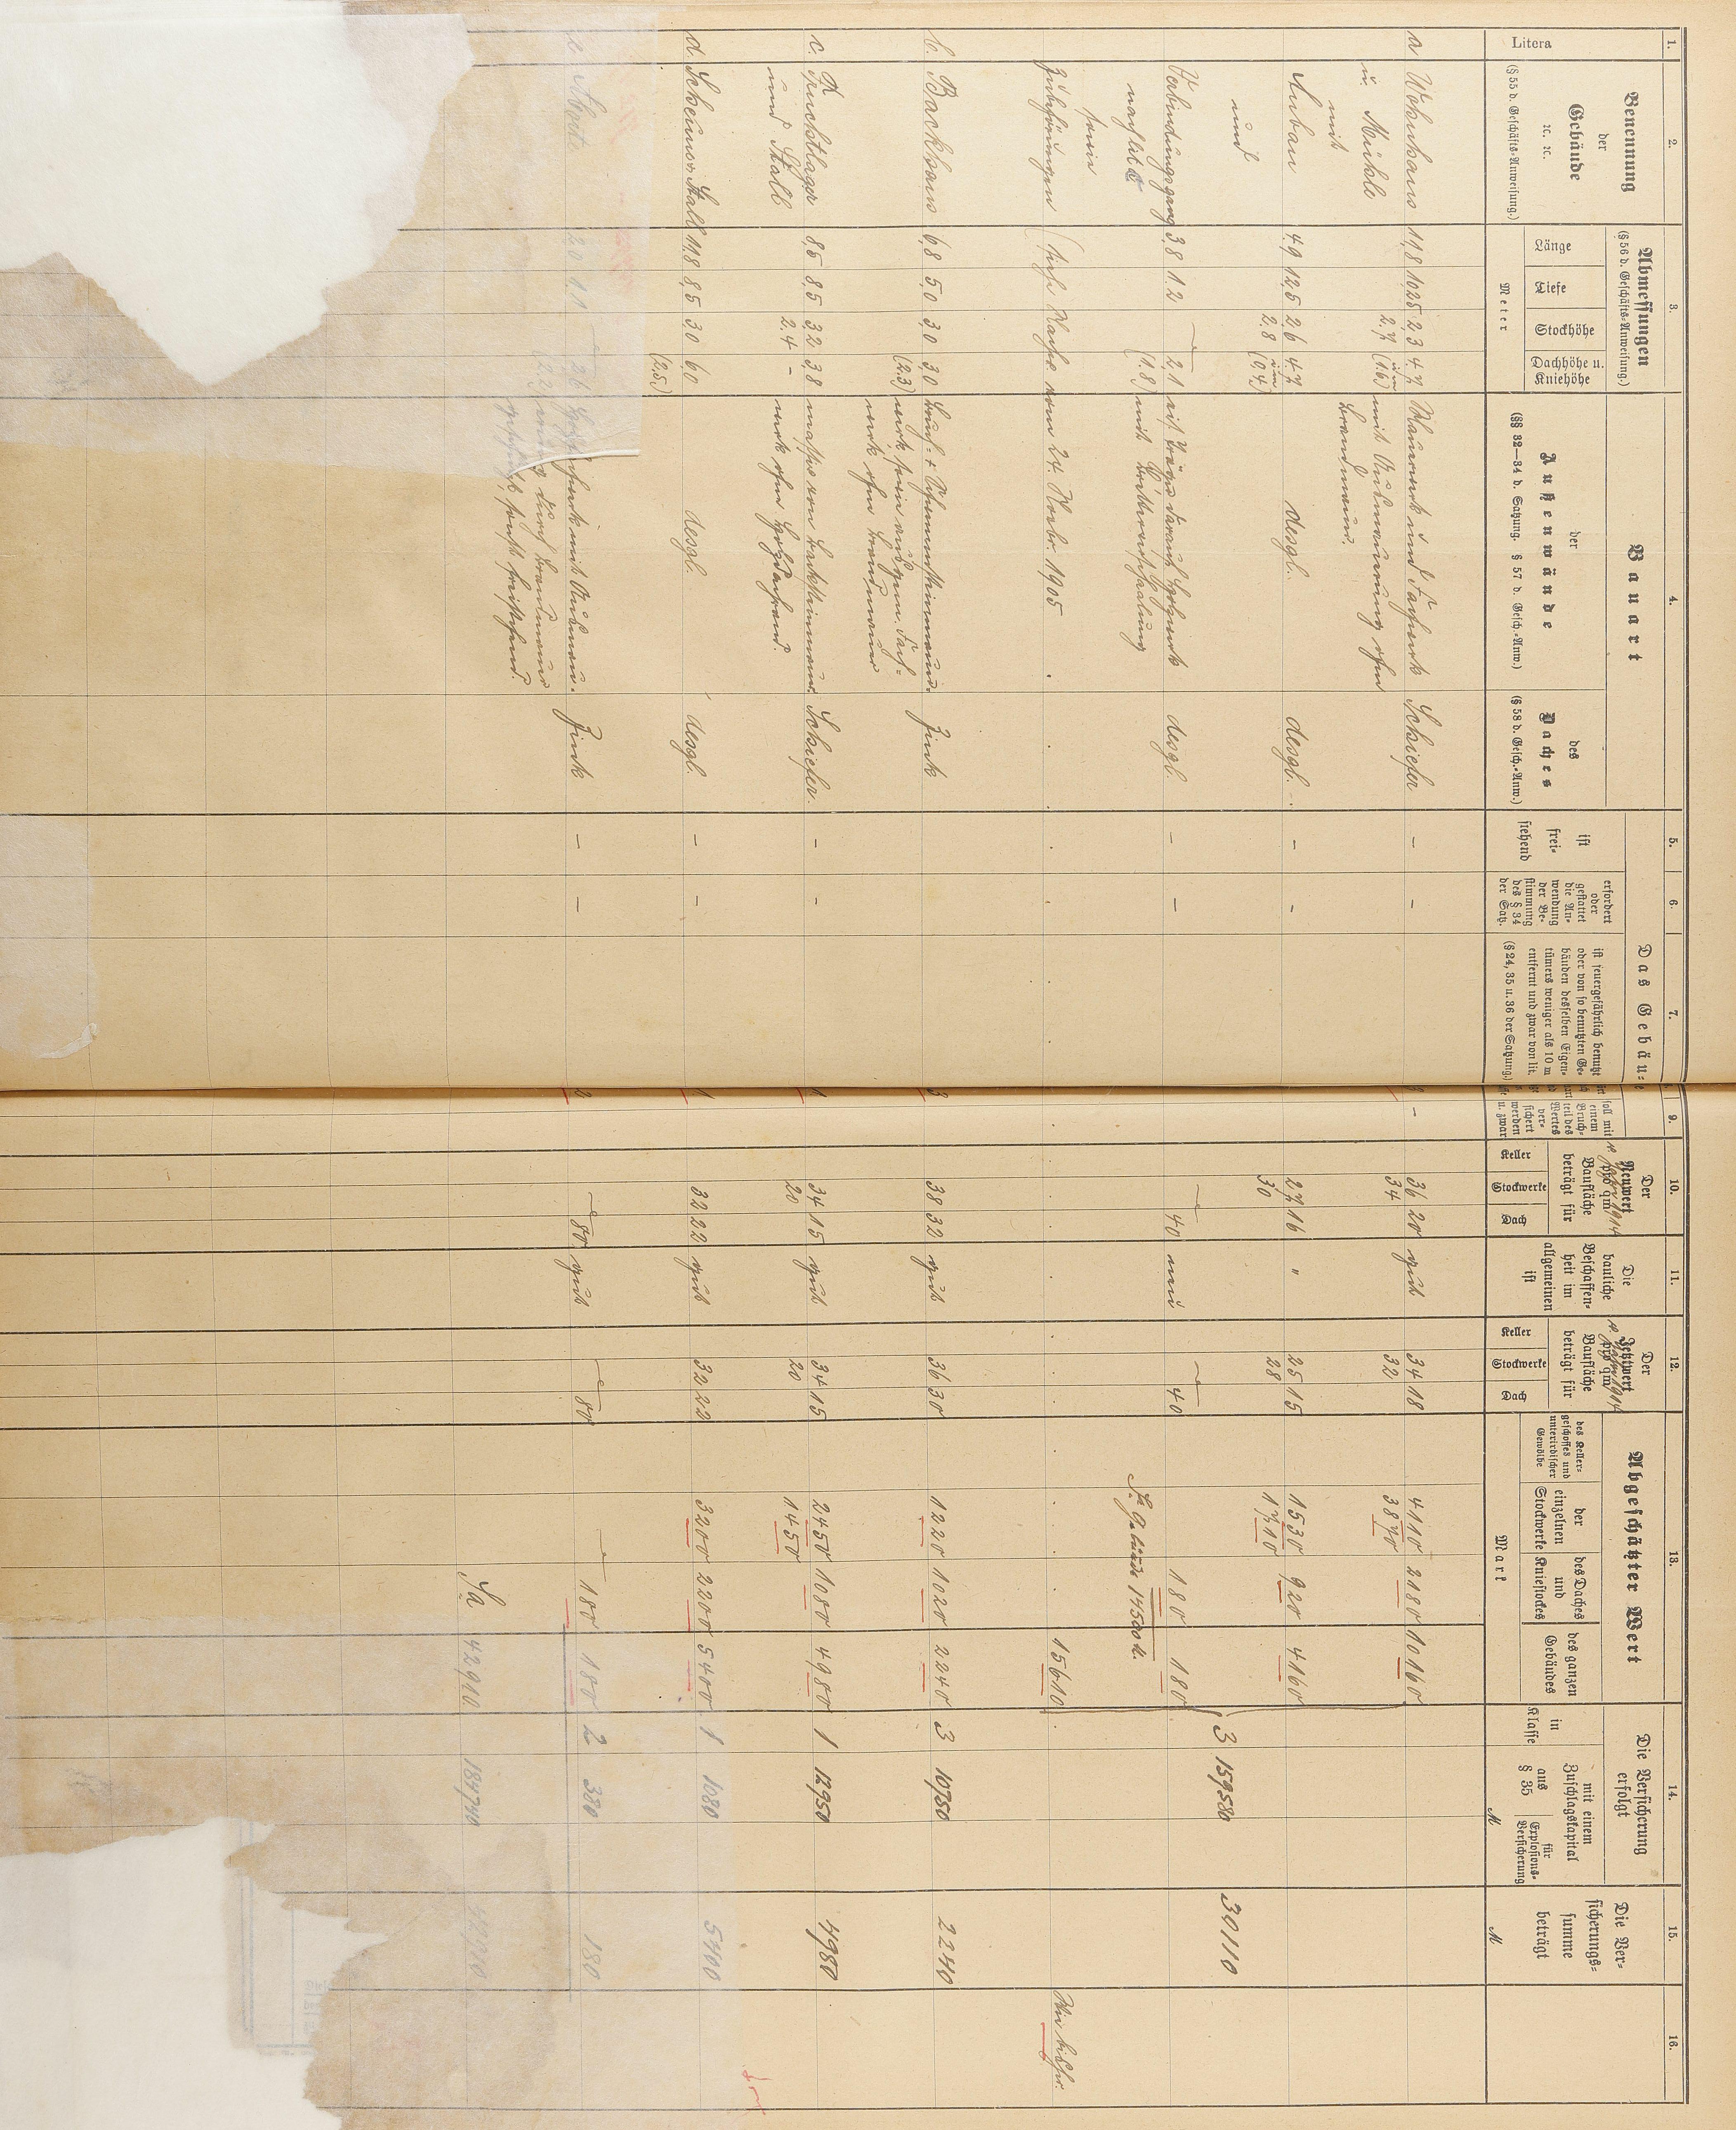 1. 2. 3. 4. 5. 6. 7. 9. 10. 11. 12. 13. 14. 15. 16.
Litera
Benennung
der
Gebäude
ꝛc. ꝛc.
(§ 55 d. Geschäfts-Anweisung.)
Abmessungen
(§ 56 d. Geschäfts-Anweisung.)
Länge
Tiefe
Stockhöhe
Dachhöhe u.
Kniehöhe
Meter
Bauart
der
Außenwände
(§§ 32—34 d. Satzung. § 57 d. Gesch.-Anw.)
des
Daches
(§ 58 d. Gesch.-Anw.)
Das Gebäu-
ist
frei-
stehend
erfordert
oder
gestattet
die An-
wendung
der Be-
stimmung
des § 34
der Satz.
ist feuergefährlich benutzt
oder von so benutzten Ge-
bäuden desselben Eigen-
tümers weniger als 10 m
entfernt und zwar von lit.
(§ 24, 35 u. 36 der Satzung.)
soll mit
einem
Bruch-
teil des
Wertes
ver-
sichert
werden
u. zwar
Der
Neuwert
pro qm
Baufläche
beträgt für
Keller
Stockwerke
Dach
Die
bauliche
Beschaffen-
heit im
allgemeinen
ist
Der
Jetztwert
pro qm
Baufläche
beträgt für
Keller
Stockwerke
Dach
Abgeschätzter Wert
des Keller-
geschosses und
unterirdischer
Gewölbe
der
einzelnen
Stockwerke
des Daches
und
Kniestockes
des ganzen
Gebäudes
Mark
Die Versicherung
erfolgt
in
Klasse
mit einem
Zuschlagskapital
aus
§ 35
für
Explosions-
Versicherung
M
Die Ver-
sicherungs-
summe
beträgt
M
a Wohnhaus 11,8 10,25 2,3 4,7 Mauerwerk und Fachwerk Schiefer – – – 36 20 gut 34 18 4110 2180 10160
u. Mühle 2,7 (1,6) mit Ausmauerung ohne 34 32 3870
Brandmauer.
mit
Anbau 4,9 12,5 2,6 4,7 desgl. desgl. – – 27 16 " 25 15 1530 920 4160
2,8 (0,4) 30 28 1710
und
3 159580 30110
Verbindungsgang 3,8 1,2 – 2,1 desgl. – – 40 neu 40 180 180
nach lit c (1,8) mit Bretterverschaalung
Sa. Gebäude 14500 M.
sowie
Zubehörungen (siehe Nachtr. vom 24. Novbr. 1905 15610 Wie bisher.
b. Backhaus 6,8 5,0 3,0 3,0 Zink 3 38 32 gut 36 30 1220 1020 2240 3 10750 2240
(2,3)
werk ohne Brandmauer
c. Fruchtlager 8,5 8,5 3,2 3,8 massive von Backsteinmauer Schiefer. – – 1 34 15 gut 34 15 2450 1080 4980 1 12950 4980
und Stall 2,4 – werk ohne 20 20 1450
d. Scheune u. Stall 11,8 8,5 3,0 6,0 desgl. desgl. – – 1 32 22 gut 32 22 3200 2200 5400 1 1080 5400
(2,5)
e. Abort 2,0 1,1 – 2,6 Zink – – 2 80 gut 80 180 180 2 380 180
(2,2) durch Brandmauer
Sa 42910 184740 42910